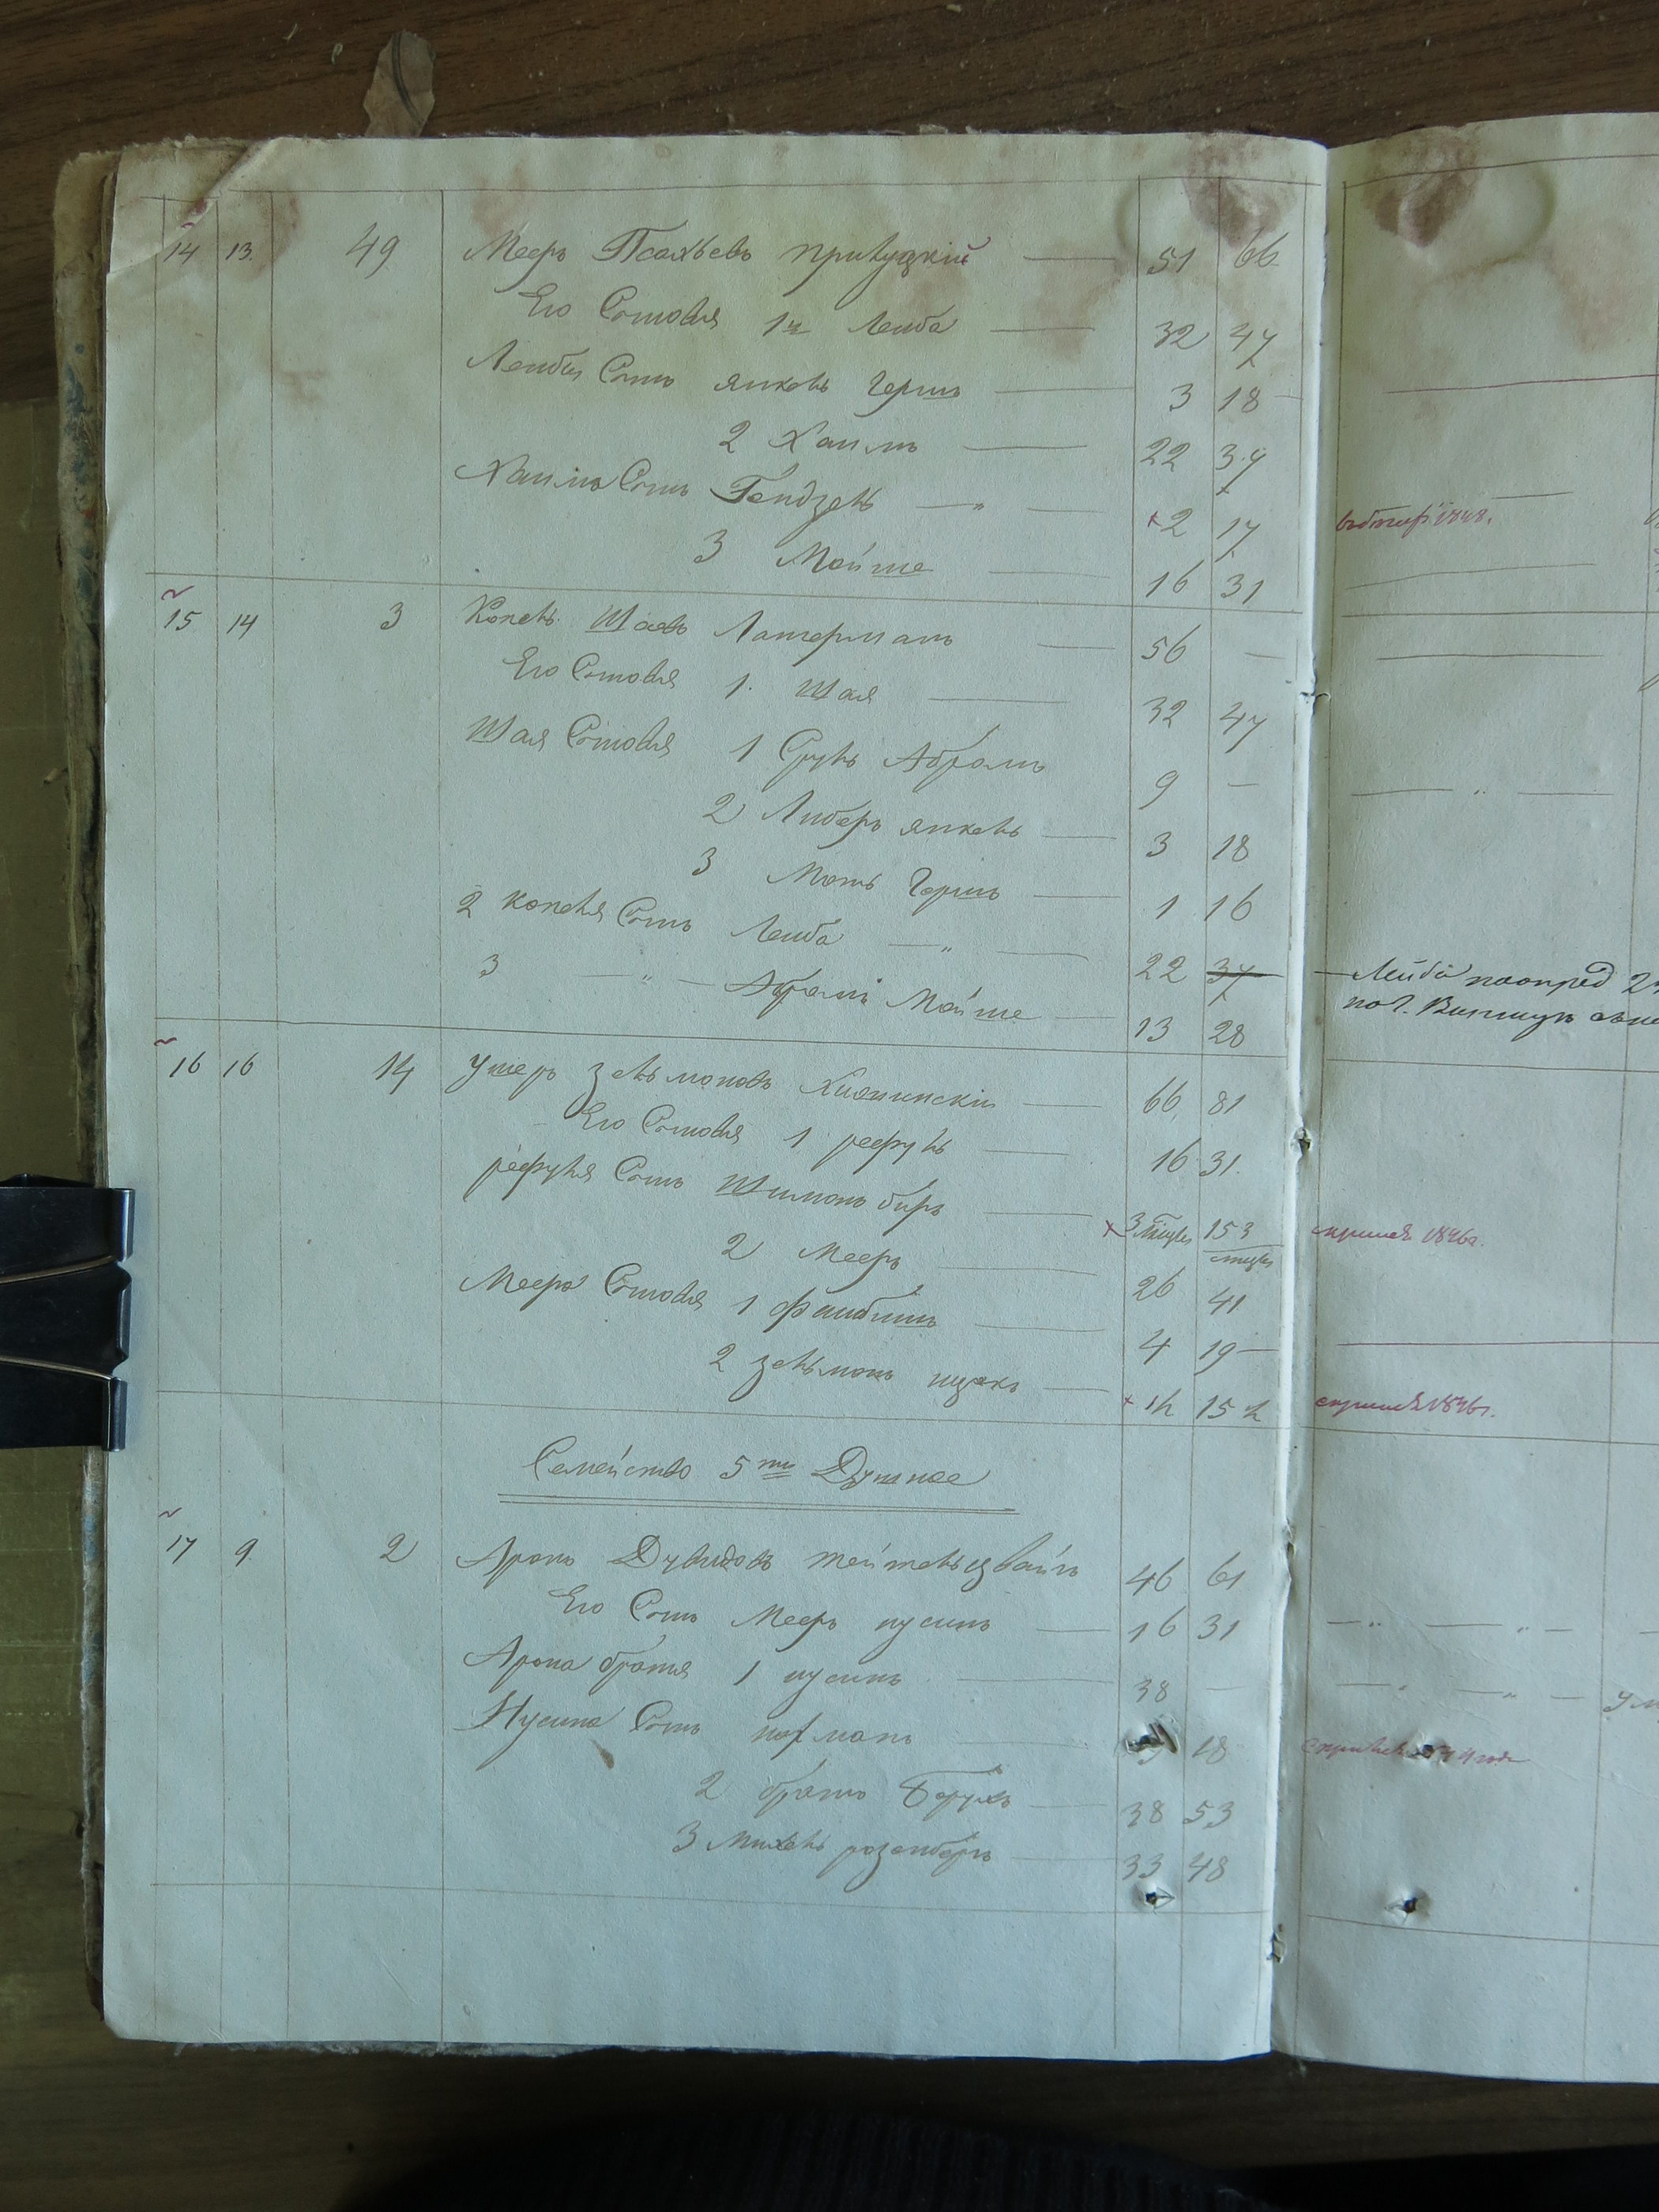 14 13. 49 Мееръ Псахьевъ Прилуцкій 51 66
Его Сыновья 1й Лейба 32 47
Лейбы Сынъ Янкель Гершъ 3 18
2 Хаимъ 22 37
Хаима Сынъ — „ — 2 17
1848.
3 Мойше 16 31
15 14 3 Копель Шаевъ Латерманъ 56 —
Его Сыновья 1. Шая 32 47
Шая Сыновья 1 Сруль Абрамъ 9 —
2 Либеръ Янкель 3 18
3 Моть Гершъ 1 16
2 Копеля Сынъ Лейба — „ — 22 37
Лейба 2
по г.
3 — „ — Абрамъ Мойше 13 28
16 16 14 Ушеръ Зельмановъ 66. 81
Его Сыновья 1 Рефуль 16 31.
Рефуля Сынъ Шимонъ Беръ 3 153
1846
2 Мееръ 26 41
Меера Сыновья 1 Файбишъ 4 19
2 Зельманъ Ицекъ 15
1846г.
Семейство 5ти Душное
17 9. 2 Аронъ Дувидовъ Тейтельцвайгъ 46 61
Его Сынъ Мееръ Нусинъ 16 31
Арона братья 1 Нусинъ 38 —
Нусина Сынъ Нахманъ 18
2 братъ Борухъ 38 53
3 Михель Розенберъ 33 48